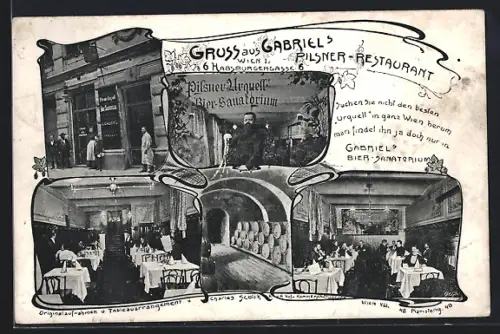 GRUSS aus GABRIELS
PILSNER-RESTAURANT
WIEN I.,
6 HABSBURGERGASSE 6
"Pilsner Urquell"
Bier-Sanatorium
Suchen Sie nicht den besten
„Urquell“ in ganz Wien herum
man findet ihn ja doch nur in
GABRIELS
BIER-SANATORIUM
Originalaufnahmen u Tableauarrangement
Charles Scolik
Wien VIII.
48 Piaristeng. 48